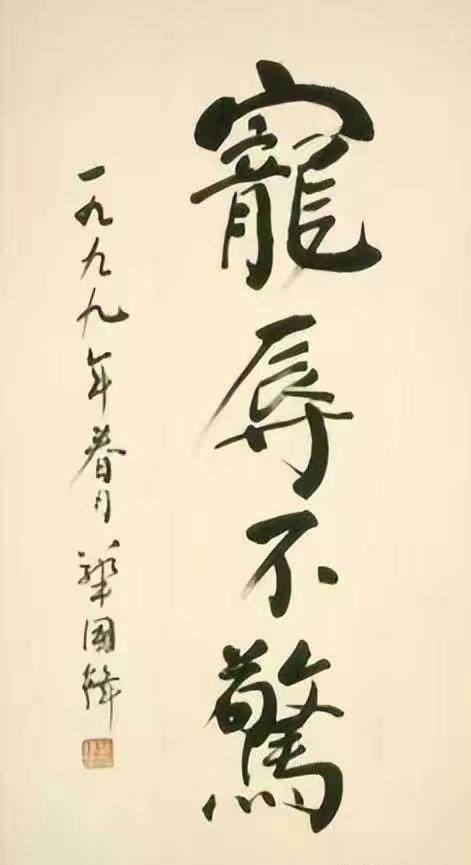 寵辱不驚
一九九九年春月 華国锋